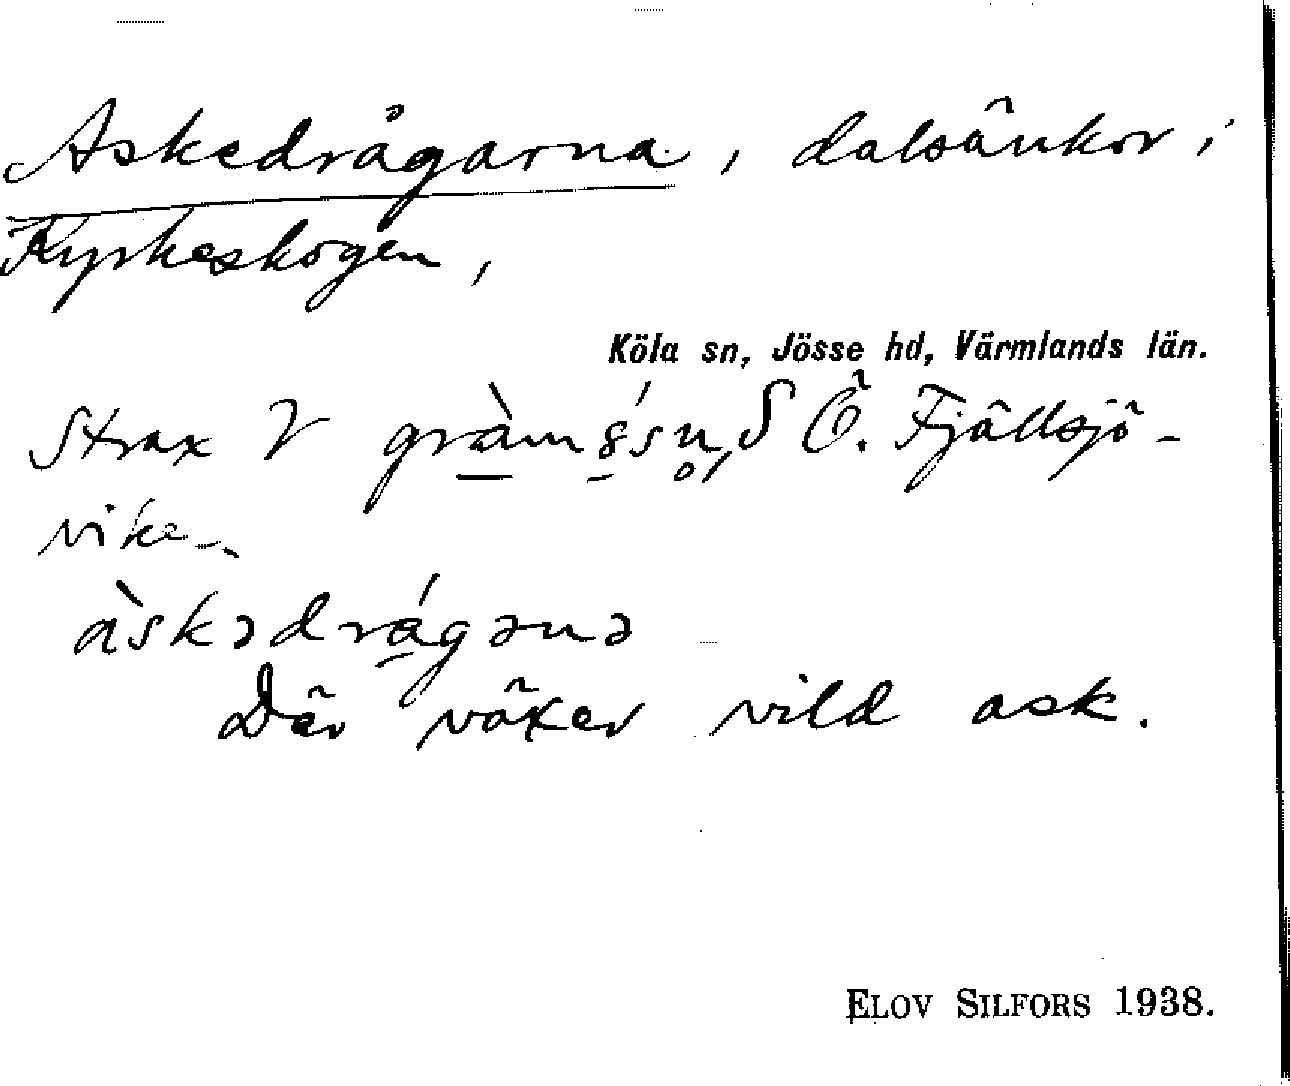 Askedrågarna, dalsänkor i
Kyrkeskogen,
Köla sn, Jösse hd, Värmlands län.
Strax V gràmsʹsn̥, S Ö. Fjällsjö-
viken.
àskədrágənə
Där växer vild ask.
ELOV SILFORS 1938.